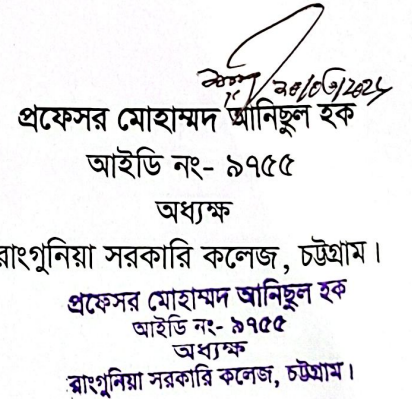 প্রফেসর মোহাম্মদ আনিছুল হক
আইডি নং- ৯৭৫৫
অধ্যক্ষ
রাংগুনিয়া সরকারি কলেজ, চট্টগ্রাম।
প্রফেসর মোহাম্মদ আনিছুল হক
আইডি নং- ৯৭৫৫
অধ্যক্ষ
রাংগুনিয়া সরকারি কলেজ, চট্টগ্রাম।